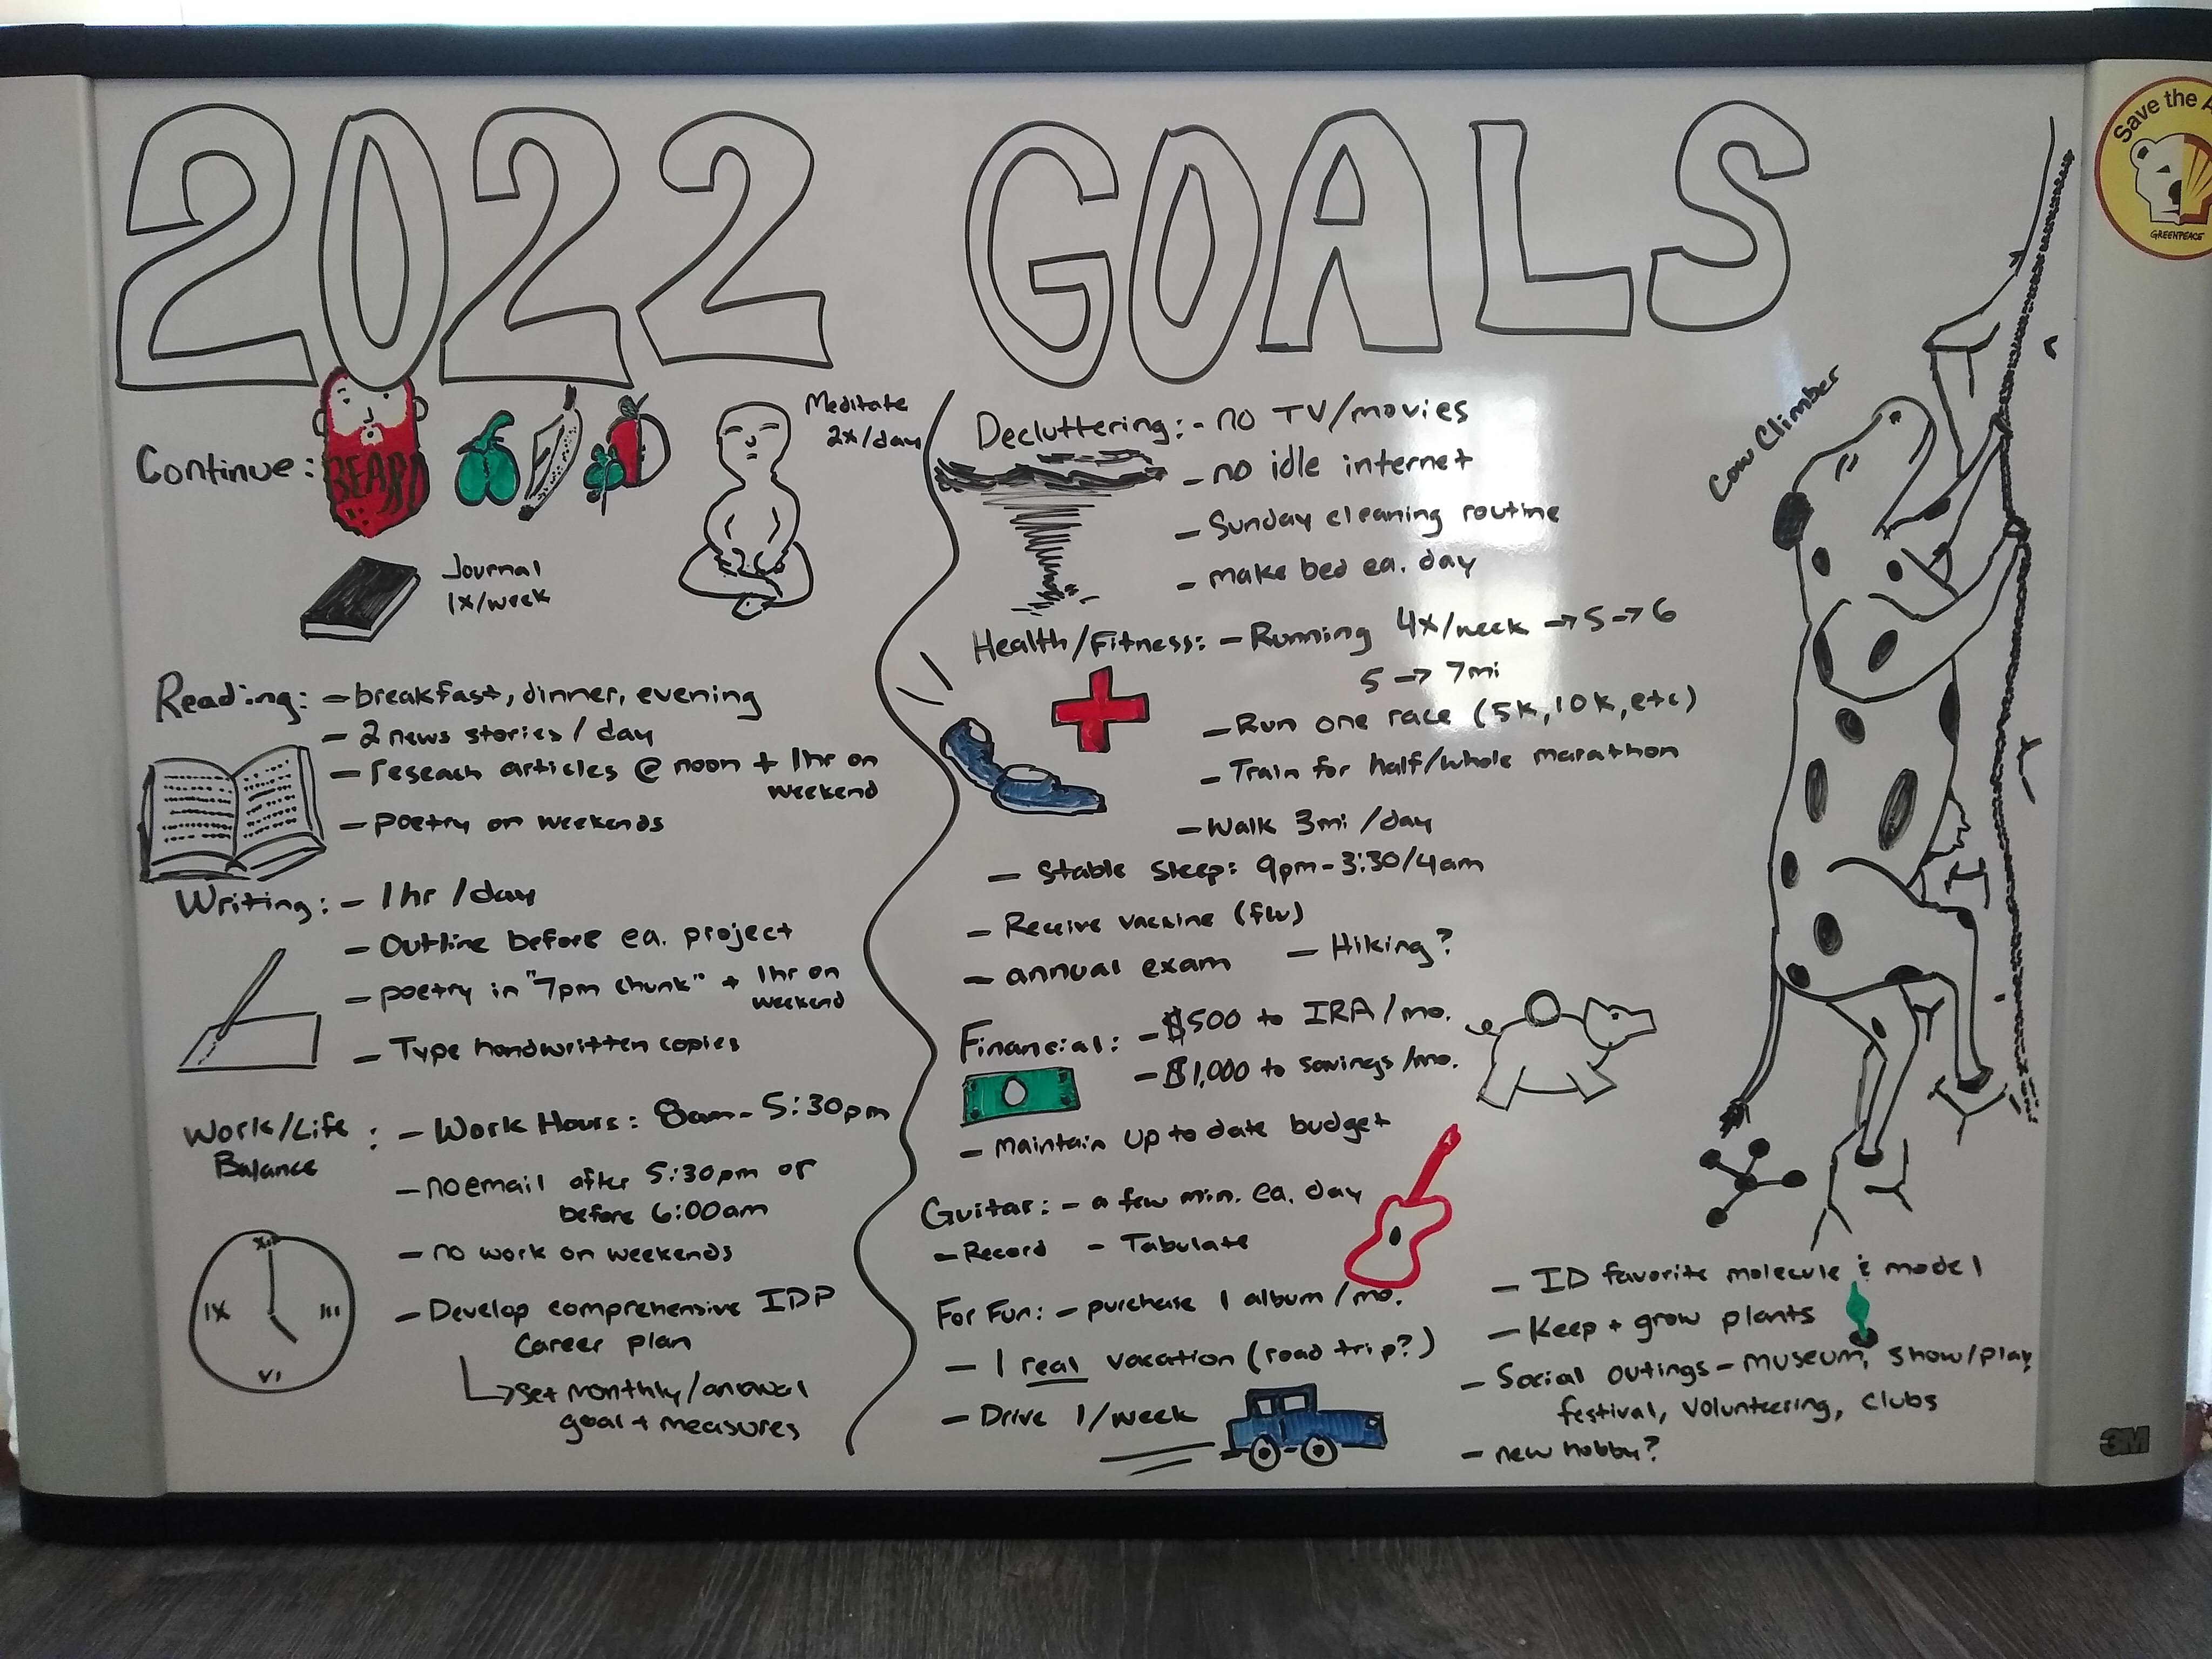 2022 GOALS
Continue:
BEARD
Meditate
2x/day
Journal
1x/week
Reading: - breakfast, dinner, evening
- 2 news stories / day
- reseach articles @ noon + 1hr on
weekend
- poetry on weekends
Writing: - 1hr /day
- Outline before ea. project
- poetry in "7pm chunk" + 1hr on
weekend
- Type handwritten copies
Work/Life
Balance
: - Work Hours: 8am - 5:30pm
- no email after 5:30pm or
before 6:00am
- no work on weekends
- Develop comprehensive IDP
Career plan
→ set monthly/annual
goal + measures
XII
III
VI
IX
Decluttering: - no TV/movies
- no idle internet
- Sunday cleaning routine
- make bed ea. day
Health/Fitness: - Running 4x/week → 5 → 6
5 → 7mi
- Run one race (5k, 10k, etc)
- Train for half/whole marathon
- Walk 3mi /day
- Stable sleep: 9pm - 3:30/4am
- Receive vaccine (flu)
- annual exam - Hiking?
Financial: - $500 to IRA/mo.
- $1,000 to savings/mo.
- maintain up to date budget
Guitar: - a few min. ea. day
- Record - Tabulate
For Fun: - purchase 1 album/mo.
- 1 real vacation (road trip?)
- Drive 1/week
- ID favorite molecule & model
- Keep + grow plants
- Social outings - museum, show/play
festival, volunteering, clubs
- new hobby?
Cow Climber
Save the A
GREENPEACE
3M